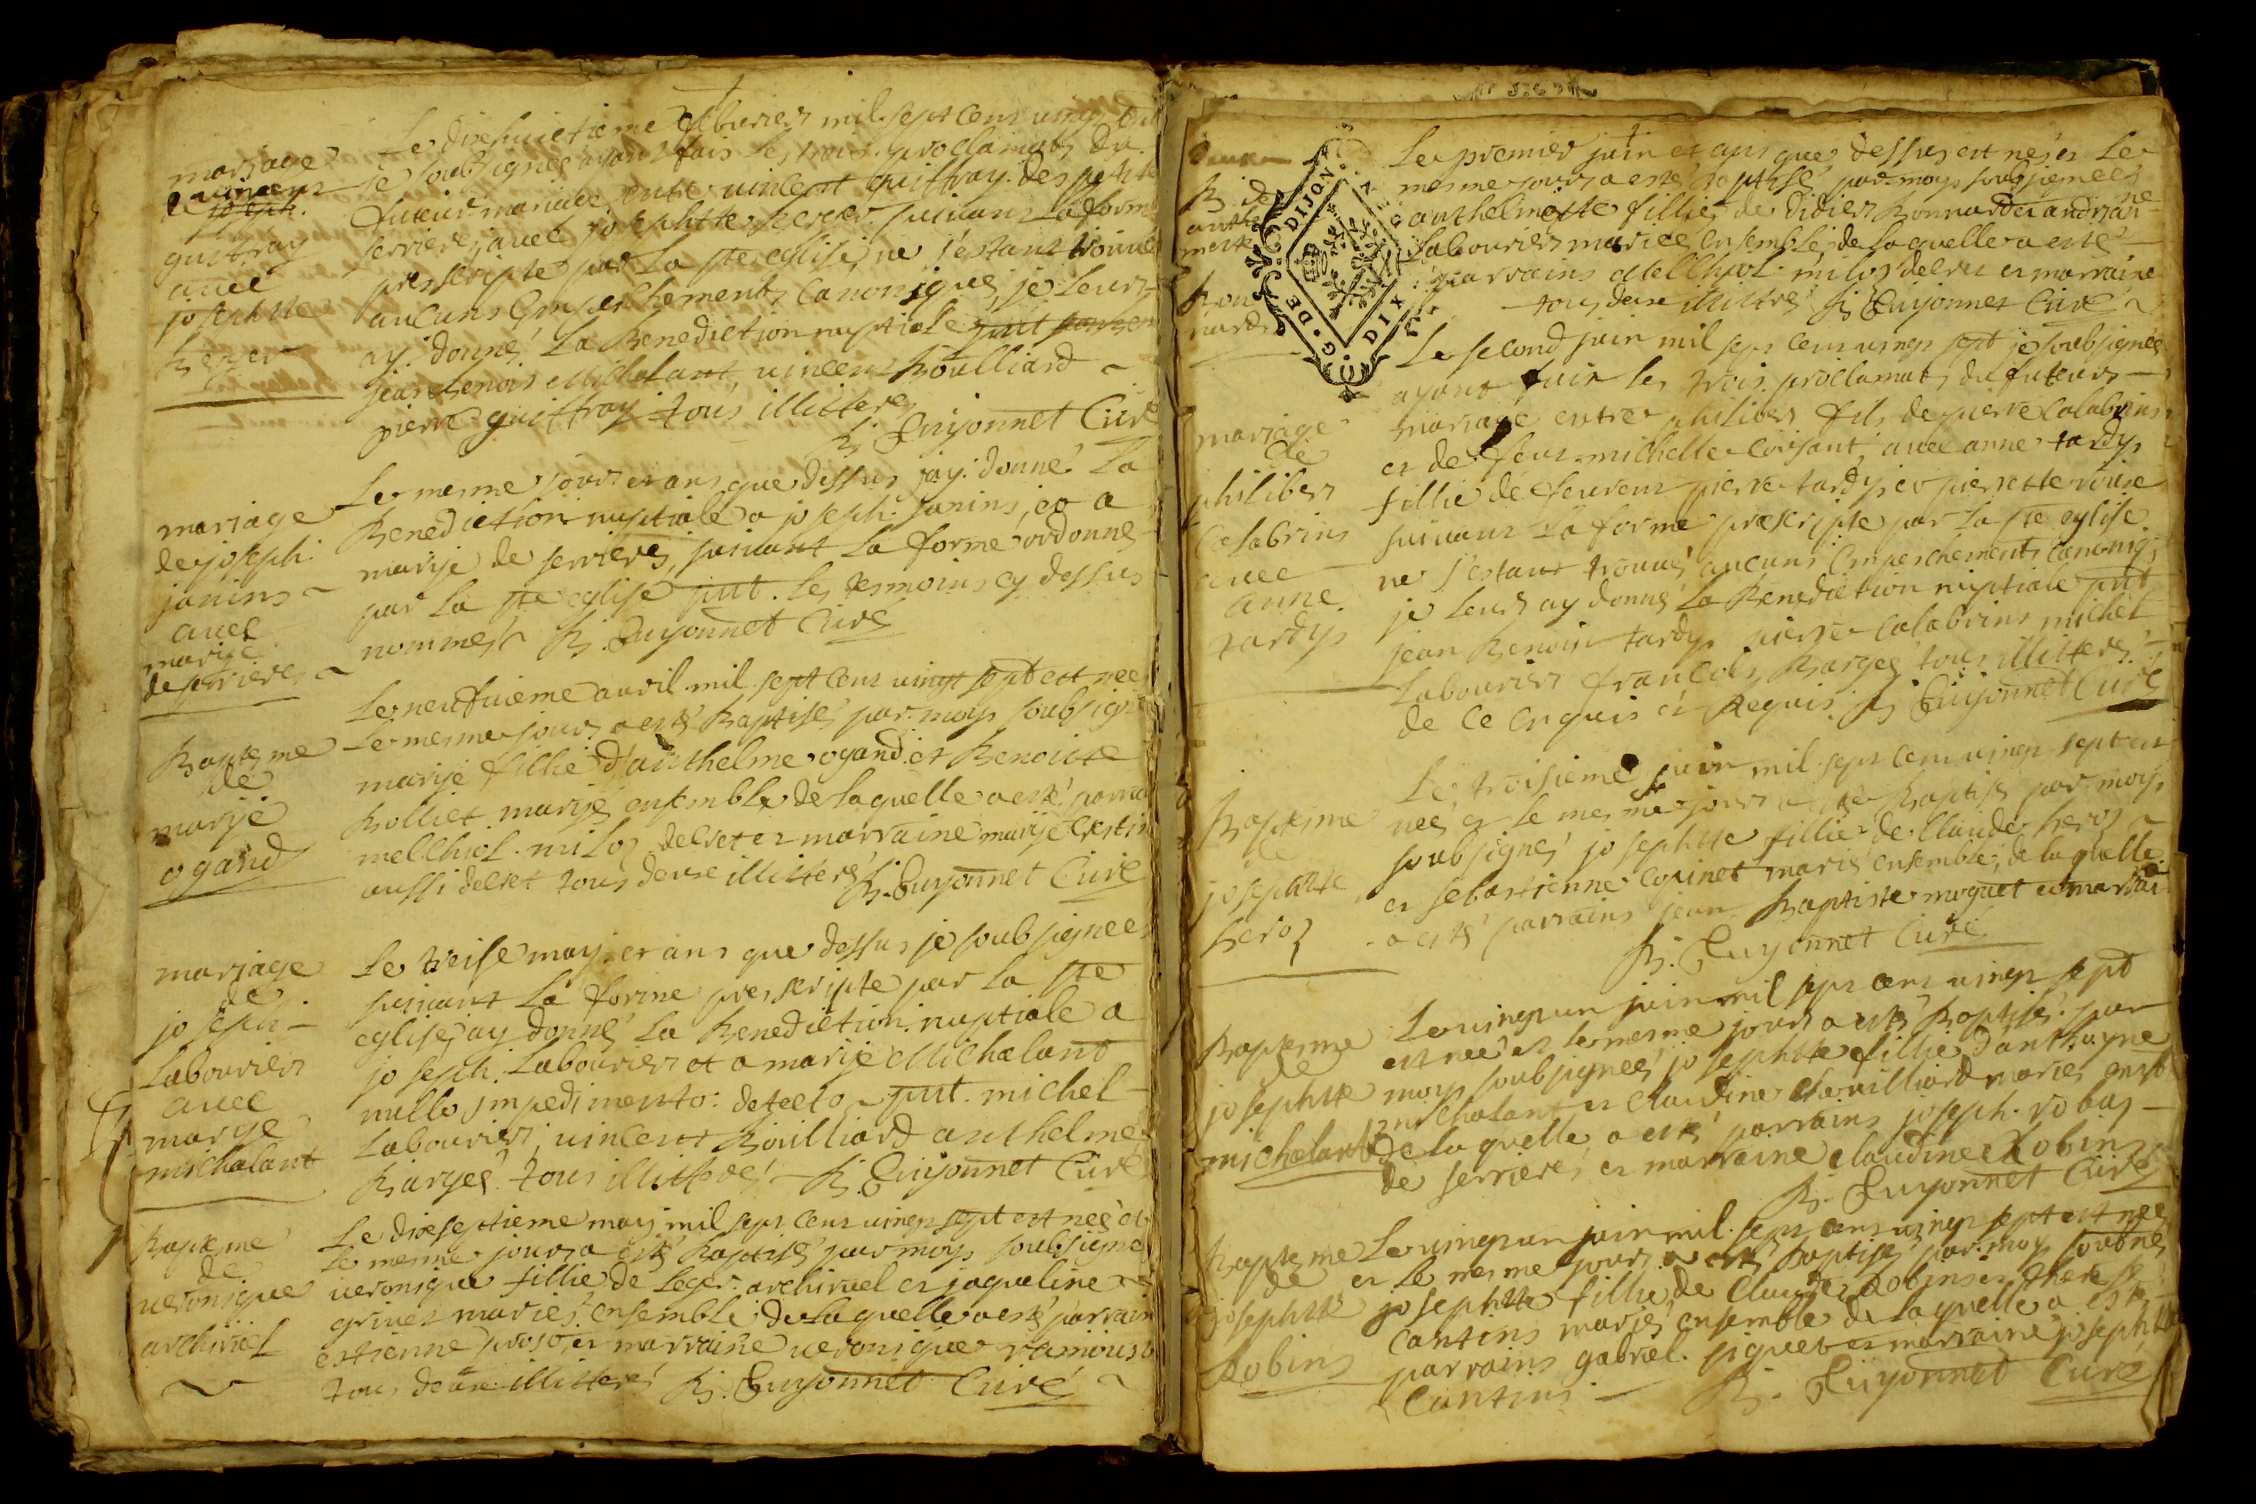 mariage
de vincent
joseph
guittray
avec
josephtte
herer
Le dixhuictieme febvrier mil sept cens vingt
je soubsigneé ayant fais les trois proclamats du
futeur mariage entre vincent guittray des petite
serriere, avec josephtte herer suivant la forme
prescripte par la ste eglise, ne s'estant trouvé
aucuns empeschements canoniques, je leurs
ay donné la Benediction nuptiale
jean benois Michalant, vincent Roulliard
pierre guittray tous illitteres
B. Guyonnet Curé
mariage
de joseph
janins
avec
marije
de serrieres
Le mesme jours et ans que dessus jay donné La
Benediction nuptiale a joseph janins, et a
marije de serrieres, suivant La forme ordonne
par La ste eglise pnt. Les tesmoins cy dessus
nommés B. Guyonnet Curé
Baptesme
de
marije
ogand
Le neufvieme avril mil sept cens vingt sept est neé
Le mesme jours a esté Baptisé par moy soubsigné
marije fillie d'anthelme ogand et Benoitte
Rolliet marijé ensemble de laquelle a esté parrai
melchiol milos delret et marraine marije
aussi delret tous deux illitteré B. Guyonnet Curé
mariage
de
joseph
Labourier
avec
marije
michalant
Le treise may et ans que dessus je soubsigneé
suivant La forme prescripte par La ste
eglise, ay donné La Benediction nuptiale a
joseph Labourier et a marije Michalant
nullo impedimento detecto pnt. michel
Labourier, vincent Rouilliard anthelme
Barges tous illitterés B. Guyonnet Curé
Baptesme
de
veronique
archiriel
Le dixseptieme may mil sept cens vingt sept est neé et
Le mesme jours a esté Baptisé par moy soubsigné
veronique fillie de Leger archiruel et jaqueline
grinet mariés ensemble de laquelle a esté parrain
estienne prost et marraine veronique
tous deux illitteré B. Guyonnet Curé
B. de
anthel
mette
Bon
nard
G. DE DIJON
DIX
Le premier juin et ans que dessus est neé et Le
mesme jours a esté Baptisé par moy soubsigneé
anthelmette fillie de didier Bonnard et andrian
ne
Labourier marieé ensemble, de laquelle a esté
parrains Melchiol milos delret et marraine
tous deux illitteré B. Guyonnet Curé
mariage
de
philibert
Calabrins
avec
anne
tardy
Le second juin mil sept cens vingt sept je soubsigneé
ayant fais les trois proclamats du futeurs
mariage entre philibert fils de pierre Calabrins
et de feue michelle Corsant, avec anne tardy
fillie de feu pierre tardy et pierrette
suivant La forme prescripte par La ste eglise
ne s'estant trouvé aucuns empeschements canoniq;
je Leurs ay donné La Benediction nuptiale pnt
jean Benoir tardy pierre Calabrins michel
Labourier francois Barges tous illitteré
de ce enquis et Requis B. Guyonnet Curé
Baptesme
de
josephtte
heroz
Le troisieme juin mil sept cens vingt sept est
neé et le mesme jours a esté Baptisé par moy
soubsigné josephtte fillie de Claude heroz
et sebastienne Copinet marié ensemble, de laquelle
a esté parrains jean Baptiste moguet et marrai
B. Guyonnet Curé
Baptesme
de
josephtte
michalant
Le vingt un juin mil sept cens vingt sept
est neé et le mesme jours a esté Baptisé par
moy soubsigneé josephtte fillie d'anthoyne
michalant et claudine Rouilliard mariés ensb
de laquelle a esté parrains joseph robas
de serriere, et marraine claudine Robins
B. Guyonnet Curé
Baptesme
de
josephtte
Robins
Le vingt un juin mil sept cens vingt sept est neé
et le mesme jours a esté Baptisé par moy
josephtte fillie de Claude Robins et therese
Cantins marjé ensemble de laquelle a esté
parrains gabriel piquet et marraine josephtte
Cantins
B. Guyonnet Curé